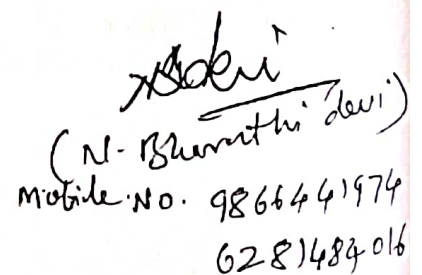 (N. Bharathi devi)
Mobile.No. 9866441974
6281484016